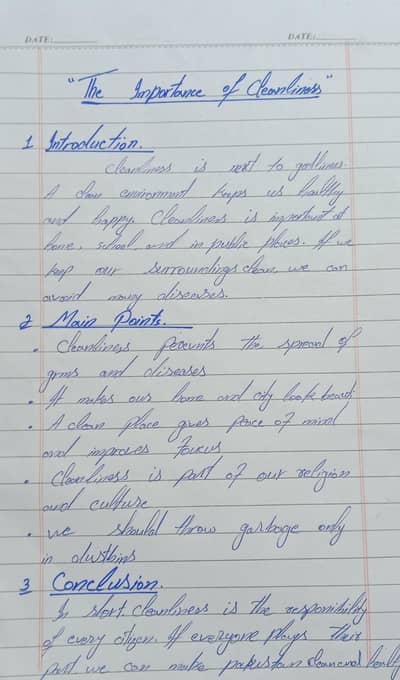 DATE: DATE:
"The Importance of Cleanliness"
1 Introduction.
Cleanliness is next to godliness.
A clean environment keeps us healthy
and happy. Cleanliness is important at
home, school, and in public places. If we
keep our surroundings clean, we can
avoid many diseases.
2 Main Points.
• Cleanliness pevents the spread of
grms and diseases
• It makes our home and city look beauti
• A clean place gives peace of mind
and improves foucus
• Cleanliness is part of our religion
and cultuse
• we should throw garbage only
in dustbins
3 Conclusion.
In short, cleanliness is the responsibility
of every citizen. If everyone plays their
part we can make pakistan clean and healt